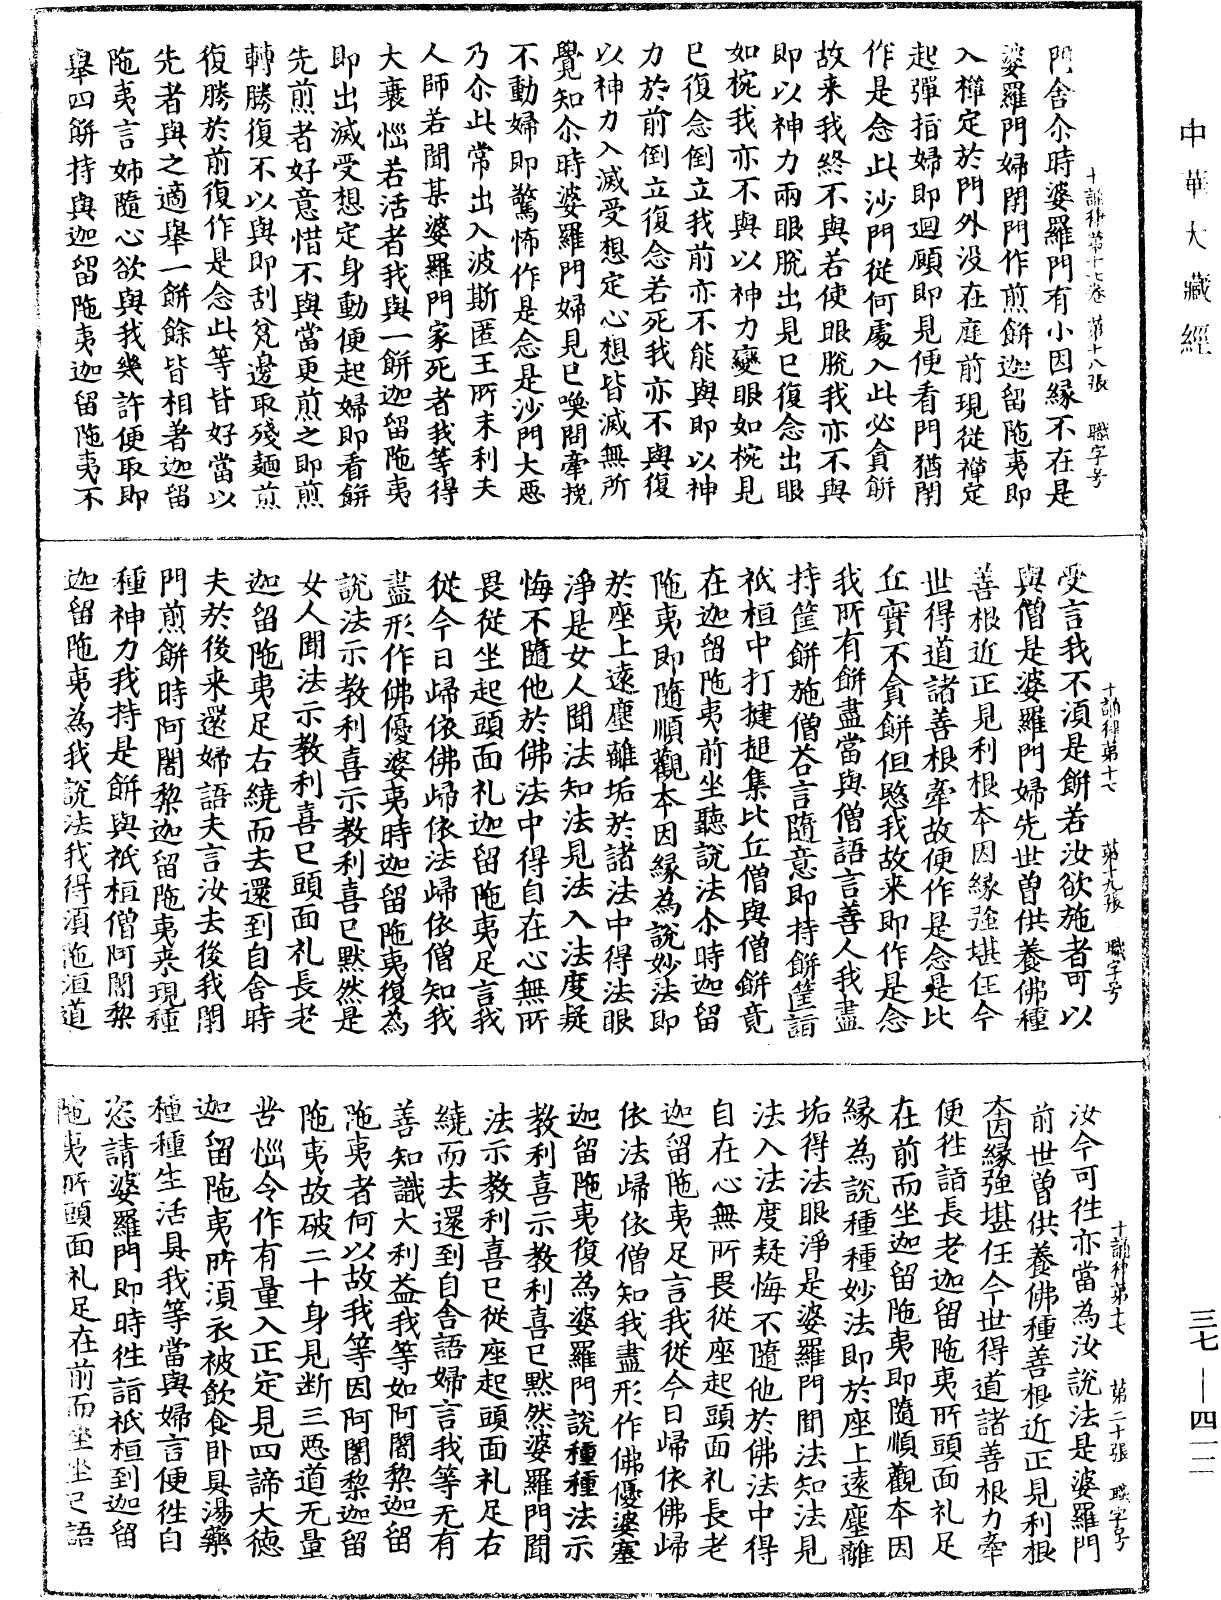 中華大藏經
十誦律第十七卷 第十八張 職字号
門舍尒時婆羅門有小因緣不在是
婆羅門婦閉門作煎餅迦留陁夷即
入禪定於門外没在庭前現從禪定
起彈指婦即迴顧即見便看門猶閉
作是念此沙門從何處入此必貪餅
故来我終不與若使眼脫我亦不與
即以神力兩眼脫出見已復念出眼
如椀我亦不與以神力變眼如椀見
已復念倒立我前亦不能與即以神
力於前倒立復念若死我亦不與復
以神力入滅受想定心想皆滅無所
覺知尒時婆羅門婦見已喚問牽挽
不動婦即驚怖作是念是沙門大惡
乃尒此常出入波斯匿王所末利夫
人師若聞某婆羅門家死者我等得
大衰惱若活者我與一餅迦留陁夷
即出滅受想定身動便起婦即看餅
先煎者好意惜不與當更煎之即煎
轉勝復不以與即刮瓮邊取殘麵煎
復勝於前復作是念此等皆好當以
先者與之適舉一餅餘皆相著迦留
陁夷言姊隨心欲與我幾許便取即
舉四餅持與迦留陁夷迦留陁夷不
十誦律第十七 第十九張 職字号
受言我不湏是餅若汝欲施者可以
與僧是婆羅門婦先世曽供養佛種
善根近正見利根本因緣強堪任今
世得道諸善根牽故便作是念是比
丘實不貪餅但愍我故来即作是念
我所有餅盡當與僧語言善人我盡
持筐餅施僧荅言隨意即持餅筐詣
祇桓中打揵搥集比丘僧與僧餅竟
在迦留陁夷前坐聽說法尒時迦留
陁夷即隨順觀本因緣為說妙法即
於座上遠塵離垢於諸法中得法眼
淨是女人聞法知法見法入法度疑
悔不隨他於佛法中得自在心無所
畏從坐起頭面礼迦留陁夷足言我
從今日歸依佛歸依法歸依僧知我
盡形作佛優婆夷時迦留陁夷復為
說法示教利喜示教利喜已默然是
女人聞法示教利喜已頭面礼長老
迦留陁夷足右繞而去還到自舍時
夫於後来還婦語夫言汝去後我閉
門煎餅時阿闍黎迦留陁夷来現種
種神力我持是餅與祇桓僧阿闍黎
迦留陁夷為我說法我得湏陁洹道
十誦律第十七 第二十張 職字号
汝今可徃亦當為汝說法是婆羅門
前世曽供養佛種善根近正見利根
本因緣強堪任今世得道諸善根力牽
便徃詣長老迦留陁夷所頭面礼足
在前而坐迦留陁夷即隨順觀本因
緣為說種種妙法即於座上遠塵離
垢得法眼淨是婆羅門聞法知法見
法入法度疑悔不隨他於佛法中得
自在心無所畏從座起頭面礼長老
迦留陁夷足言我從今日歸依佛歸
依法歸依僧知我盡形作佛優婆塞
迦留陁夷復為婆羅門說種種法示
教利喜示教利喜已默然婆羅門聞
法示教利喜已從座起頭面礼足右
繞而去還到自舍語婦言我等无有
善知識大利益我等如阿闍黎迦留
陁夷者何以故我等因阿闍黎迦留
陁夷故破二十身見断三惡道无量
苦惱令作有量入正定見四諦大德
迦留陁夷所湏衣被飲食卧具湯藥
種種生活具我等當與婦言便徃自
恣請婆羅門即時徃詣祇桓到迦留
陁夷所頭面礼足在前而坐坐已語
三七—四一二